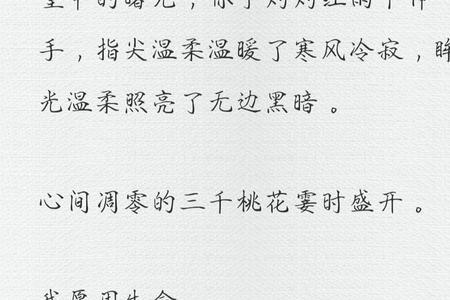 手，指尖温柔温暖了寒风冷寂，眸
光温柔照亮了无边黑暗。
心间凋零的三千桃花霎时盛开。
我愿用生命